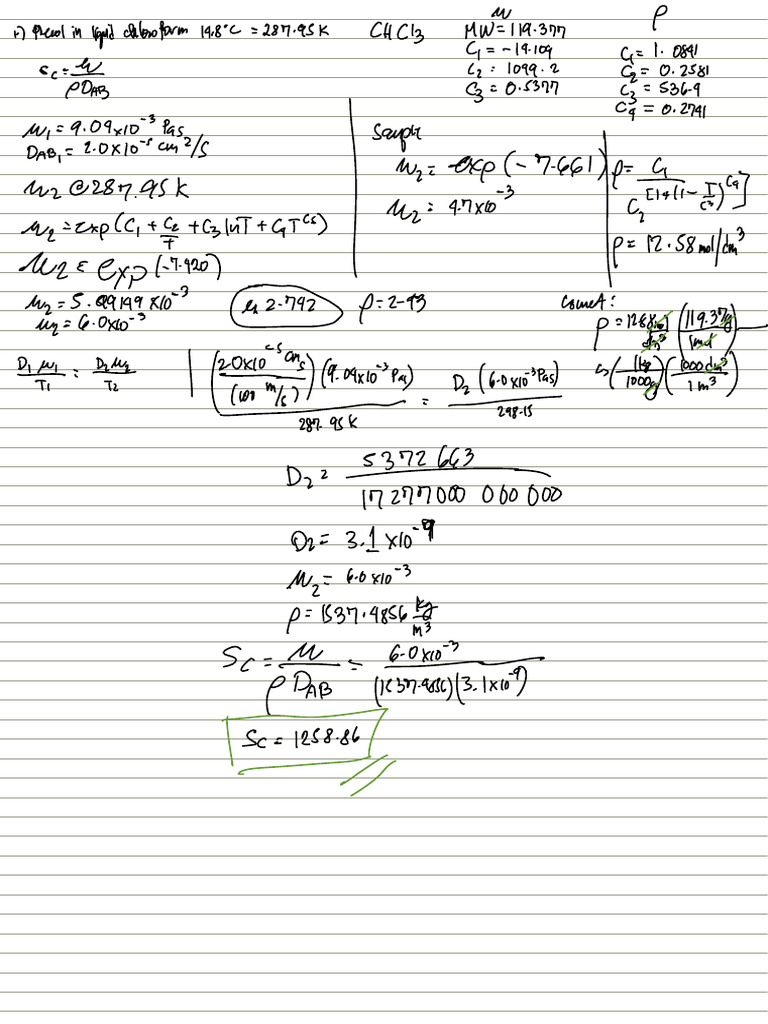 in liquid chloroform 14.8°C = 287.95 K
CHCl3
μ
MW = 119.377
C1 = -14.109
C2 = 1099.2
C3 = 0.5377
ρ
C1 = 1.0841
C2 = 0.2581
C3 = 536.4
C4 = 0.2741
Sc = μ / ρ DAB
μ1 = 9.09x10^-3 Pas
DAB1 = 2.0x10^-5 cm^2/s
μ2 @ 287.95 K
μ2 = exp(C1 + C2/T + C3 lnT + C4 T^C5)
μ2 = exp(-7.420)
μ2 = 5.99149 x10^-3
μ2 = 6.0x10^-3
2.792
ρ = 2.93
Sample
μ2 = exp(-7.661)
μ2 = 4.7x10^-3
ρ = C1 / C2^[1+(1 - T/C3)^C4]
ρ = 12.58 mol/dm^3
Convert:
ρ = (119.37g / 1mol)
(1kg / 1000g) (1000dm^3 / 1m^3)
D1 μ1 / T1 = D2 μ2 / T2
(2.0x10^-5 / (100 m/s)) (9.09x10^-3 Pas) / 287.95 K = D2 (6.0x10^-3 Pas) / 298.15
D2 = 5372663 / 17277000 000 000
D2 = 3.1 x10^-9
μ2 = 6.0x10^-3
ρ = 1537.4856 kg/m^3
Sc = μ / ρ DAB = 6.0x10^-3 / (1537.4856)(3.1x10^-9)
Sc = 1258.86